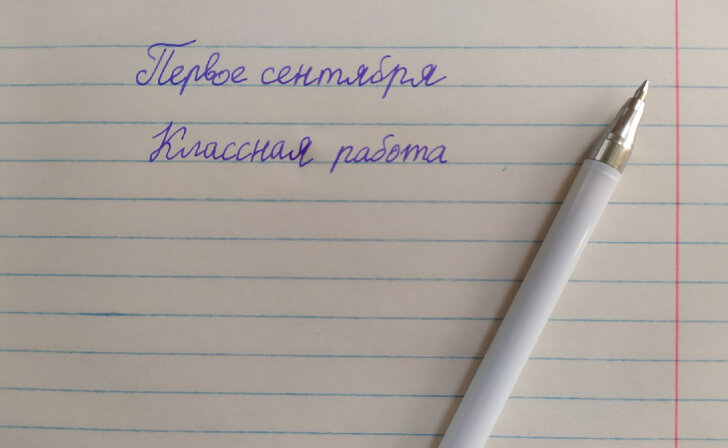 Первое сентября
Классная работа